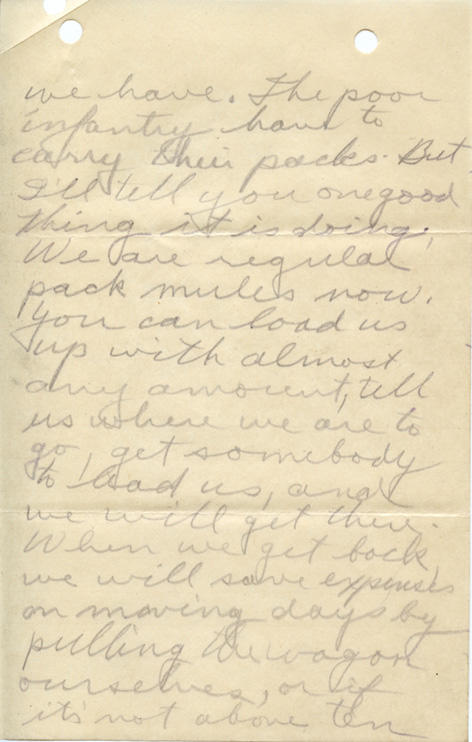 we have. The poor
infantry have to
carry their packs. But
I'll tell you one good
thing it is doing.
We are regular
pack mules now.
You can load us
up with almost
any amount, tell
us where we are to
go, get somebody
to lead us, and
we will get there.
When we get back
we will save expenses
on moving days by
pulling the wagon
ourselves, or if
it's not above ten